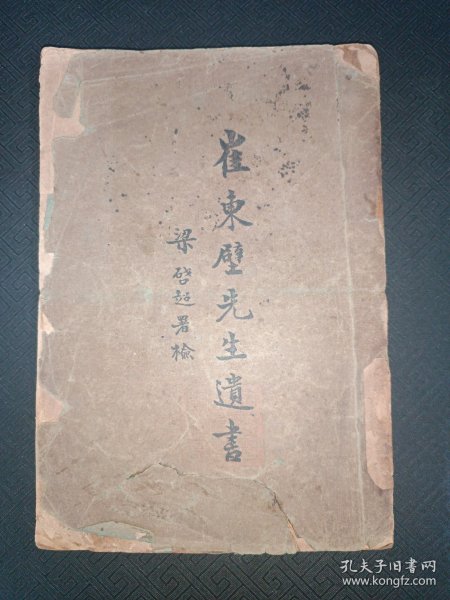 崔東壁先生遺書
梁啓超署檢
孔夫子旧书网
www.kongfz.com